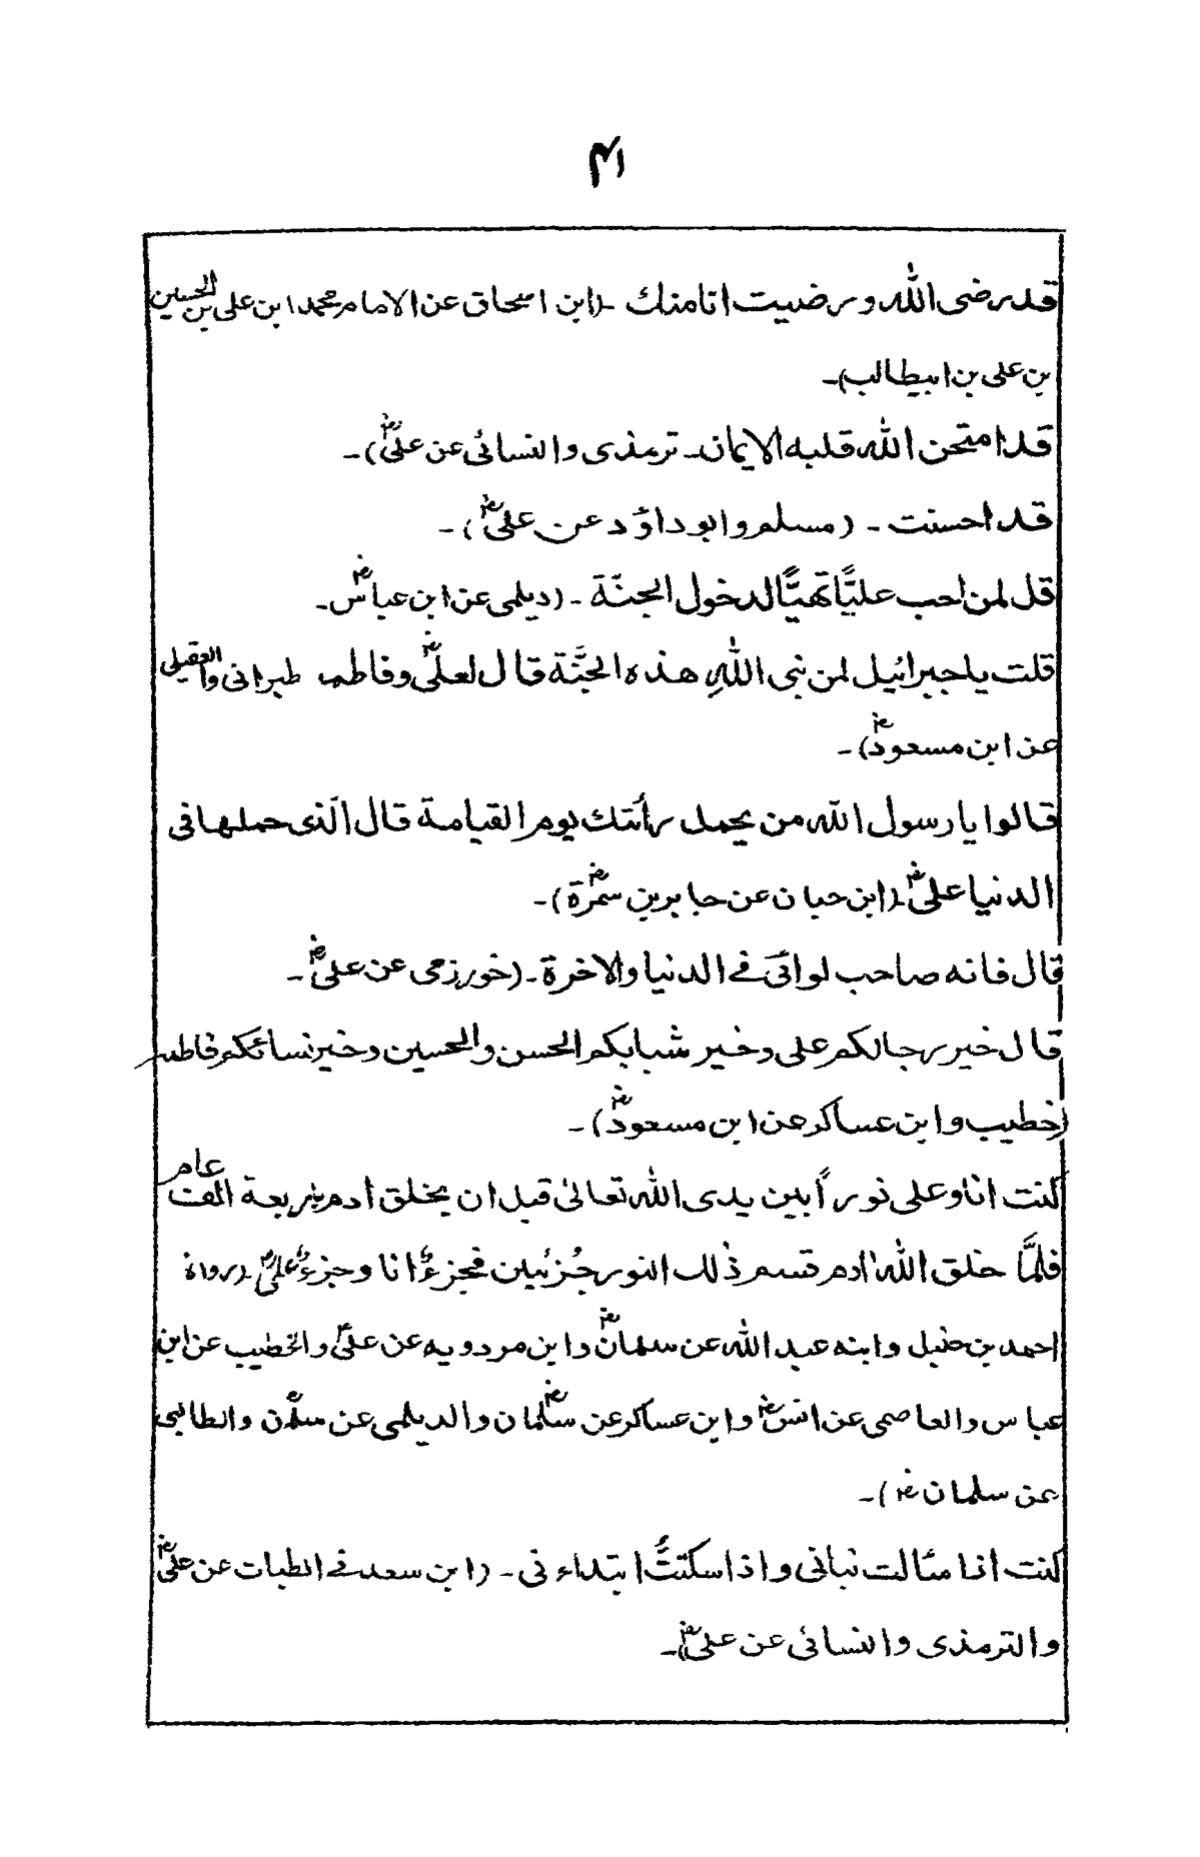 ۴۱
قد رضی الله و رضیت انا منك ۔ (ابن اسحاق عن الامام محمد ابن علی بن الحسین
بن علی بن ابیطالب)۔
قد امتحن الله قلبه الایمان۔ ترمذی والنسائی عن علیؓ)۔
قد احسنت ۔ (مسلم وابوداؤد عن علیؓ)۔
قل لمن احب علیًّا تهیًّا لدخول الجنّة ۔ (دیلمی عن ابن عباسؓ۔
قلت یاجبرائیل لمن بنی اللهِ هذه الجنَّة قال لعلیؓ وفاطمه طبرانی والعقیلی
عن ابن مسعودؓ)۔
قالوا یارسول الله من یحمل رأئتك یوم القیامة قال الّذی حملها فی
الدنیا علیؓ۔ (ابن حبان عن جابر بن سمرةؓ)۔
قال فانه صاحب لوائی فے الدنیا والاخرة۔ (خورزمی عن علیؓ۔
قال خیر رجالکم علی وخیر شبابکم الحسن والحسین وخیر نسائکم فاطمه
(خطیب وابن عساکر عن ابن مسعودؓ)۔
کنت انا وعلی نوراً بین یدی الله تعالیٰ قبل ان یخلق ادم باربعة الف عام
فلمَّا خلق اللهُ ادم قسم ذٰلك النور جُزئین فجزءٌ انا وجزءٌ علیؓ۔ (رواه
احمد بن حنبل وابنه عبد الله عن سلمانؓ وابن مردویه عن علیؓ والخطیب عن ابن
عباس والعاصمی عن انسؓ وابن عساکر عن سلمانؓ والدیلمی عن سلمٰن والطالبی
عن سلمانؓ)۔
کنت اذا سئالت نبانی واذا سکتتُ ابتداءنی ۔ (ابن سعد فے الطبات عن علیؓ
والترمذی والنسائی عن علیؓ)۔